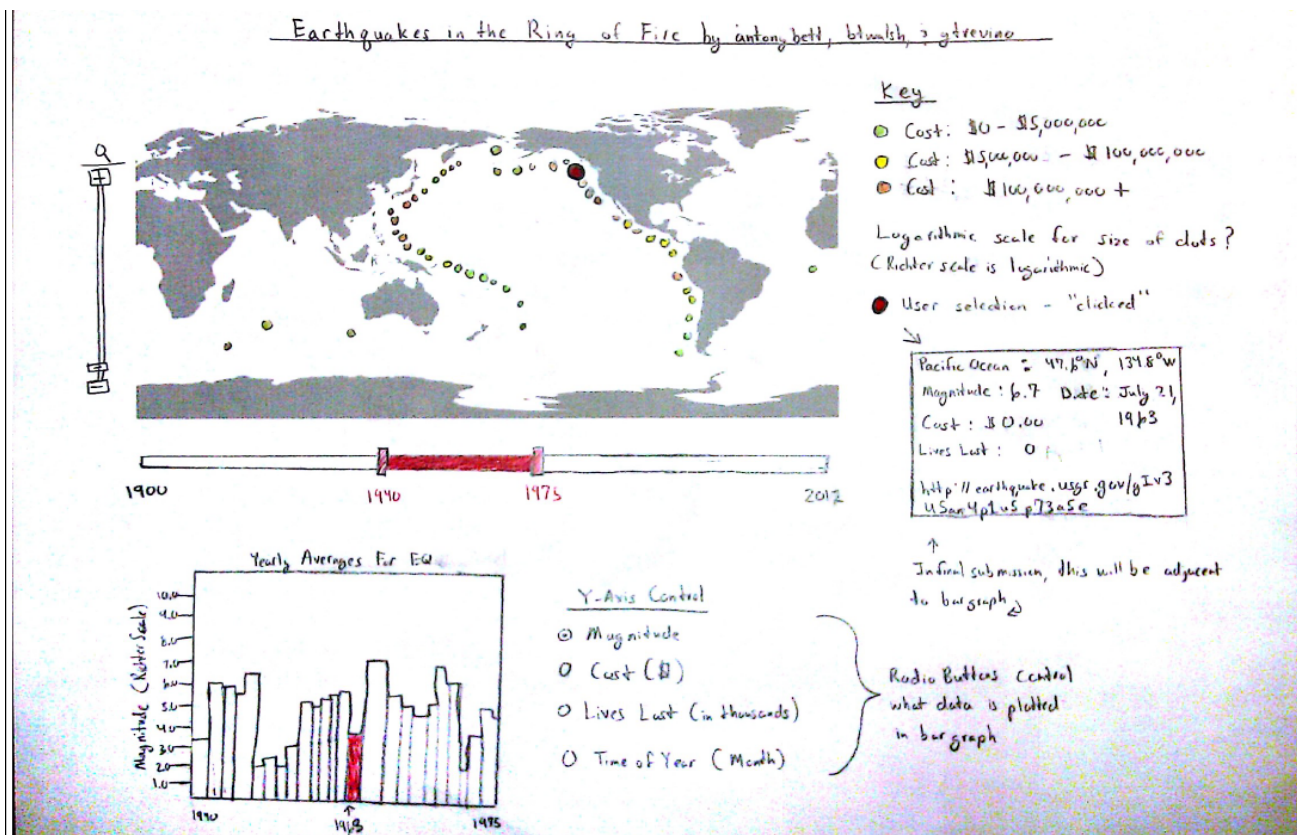 Earthquakes in the Ring of Fire by antonybett, btwalsh, & gtrevino
Key
Cost: $0 - $5,000,000
Cost: $500,000 - $100,000,000
Cost: $100,000,000 +
Logarithmic scale for size of dots?
(Richter scale is logarithmic)
User selection - "clicked"
Pacific Ocean: 47.6°N, 134.8°W
Magnitude: 6.7 Date: July 21,
1963
Cost: $0.00
Lives Lost: 0
http://earthquake.usgs.gov/gIv3
u5an4p1u5p73a5e
In final submission, this will be adjacent
to bar graph
+
-
1900
1940
1975
2012
Yearly Averages For EQ
Magnitude (Richter Scale)
10.0
9.0
8.0
7.0
6.0
5.0
4.0
3.0
2.0
1.0
1940
1963
1975
Y-Axis Control
Magnitude
Cost ($)
Lives Lost (in thousands)
Time of Year (Month)
Radio Buttons Control
what data is plotted
in bar graph